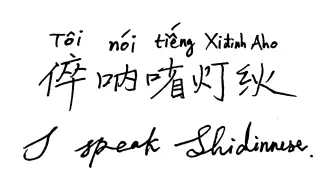 Tôi nói tiếng Xiđinh Aho
倅呐啫灯紁
I speak Shidinnese.